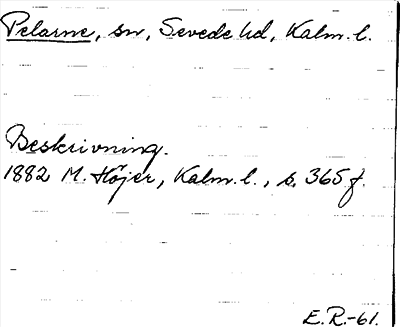 Pelarne, sn, Sevede hd, Kalm. l.
Beskrivning.
1882 M. Höjer, Kalm. l., s. 365 f.
E. R.-61.